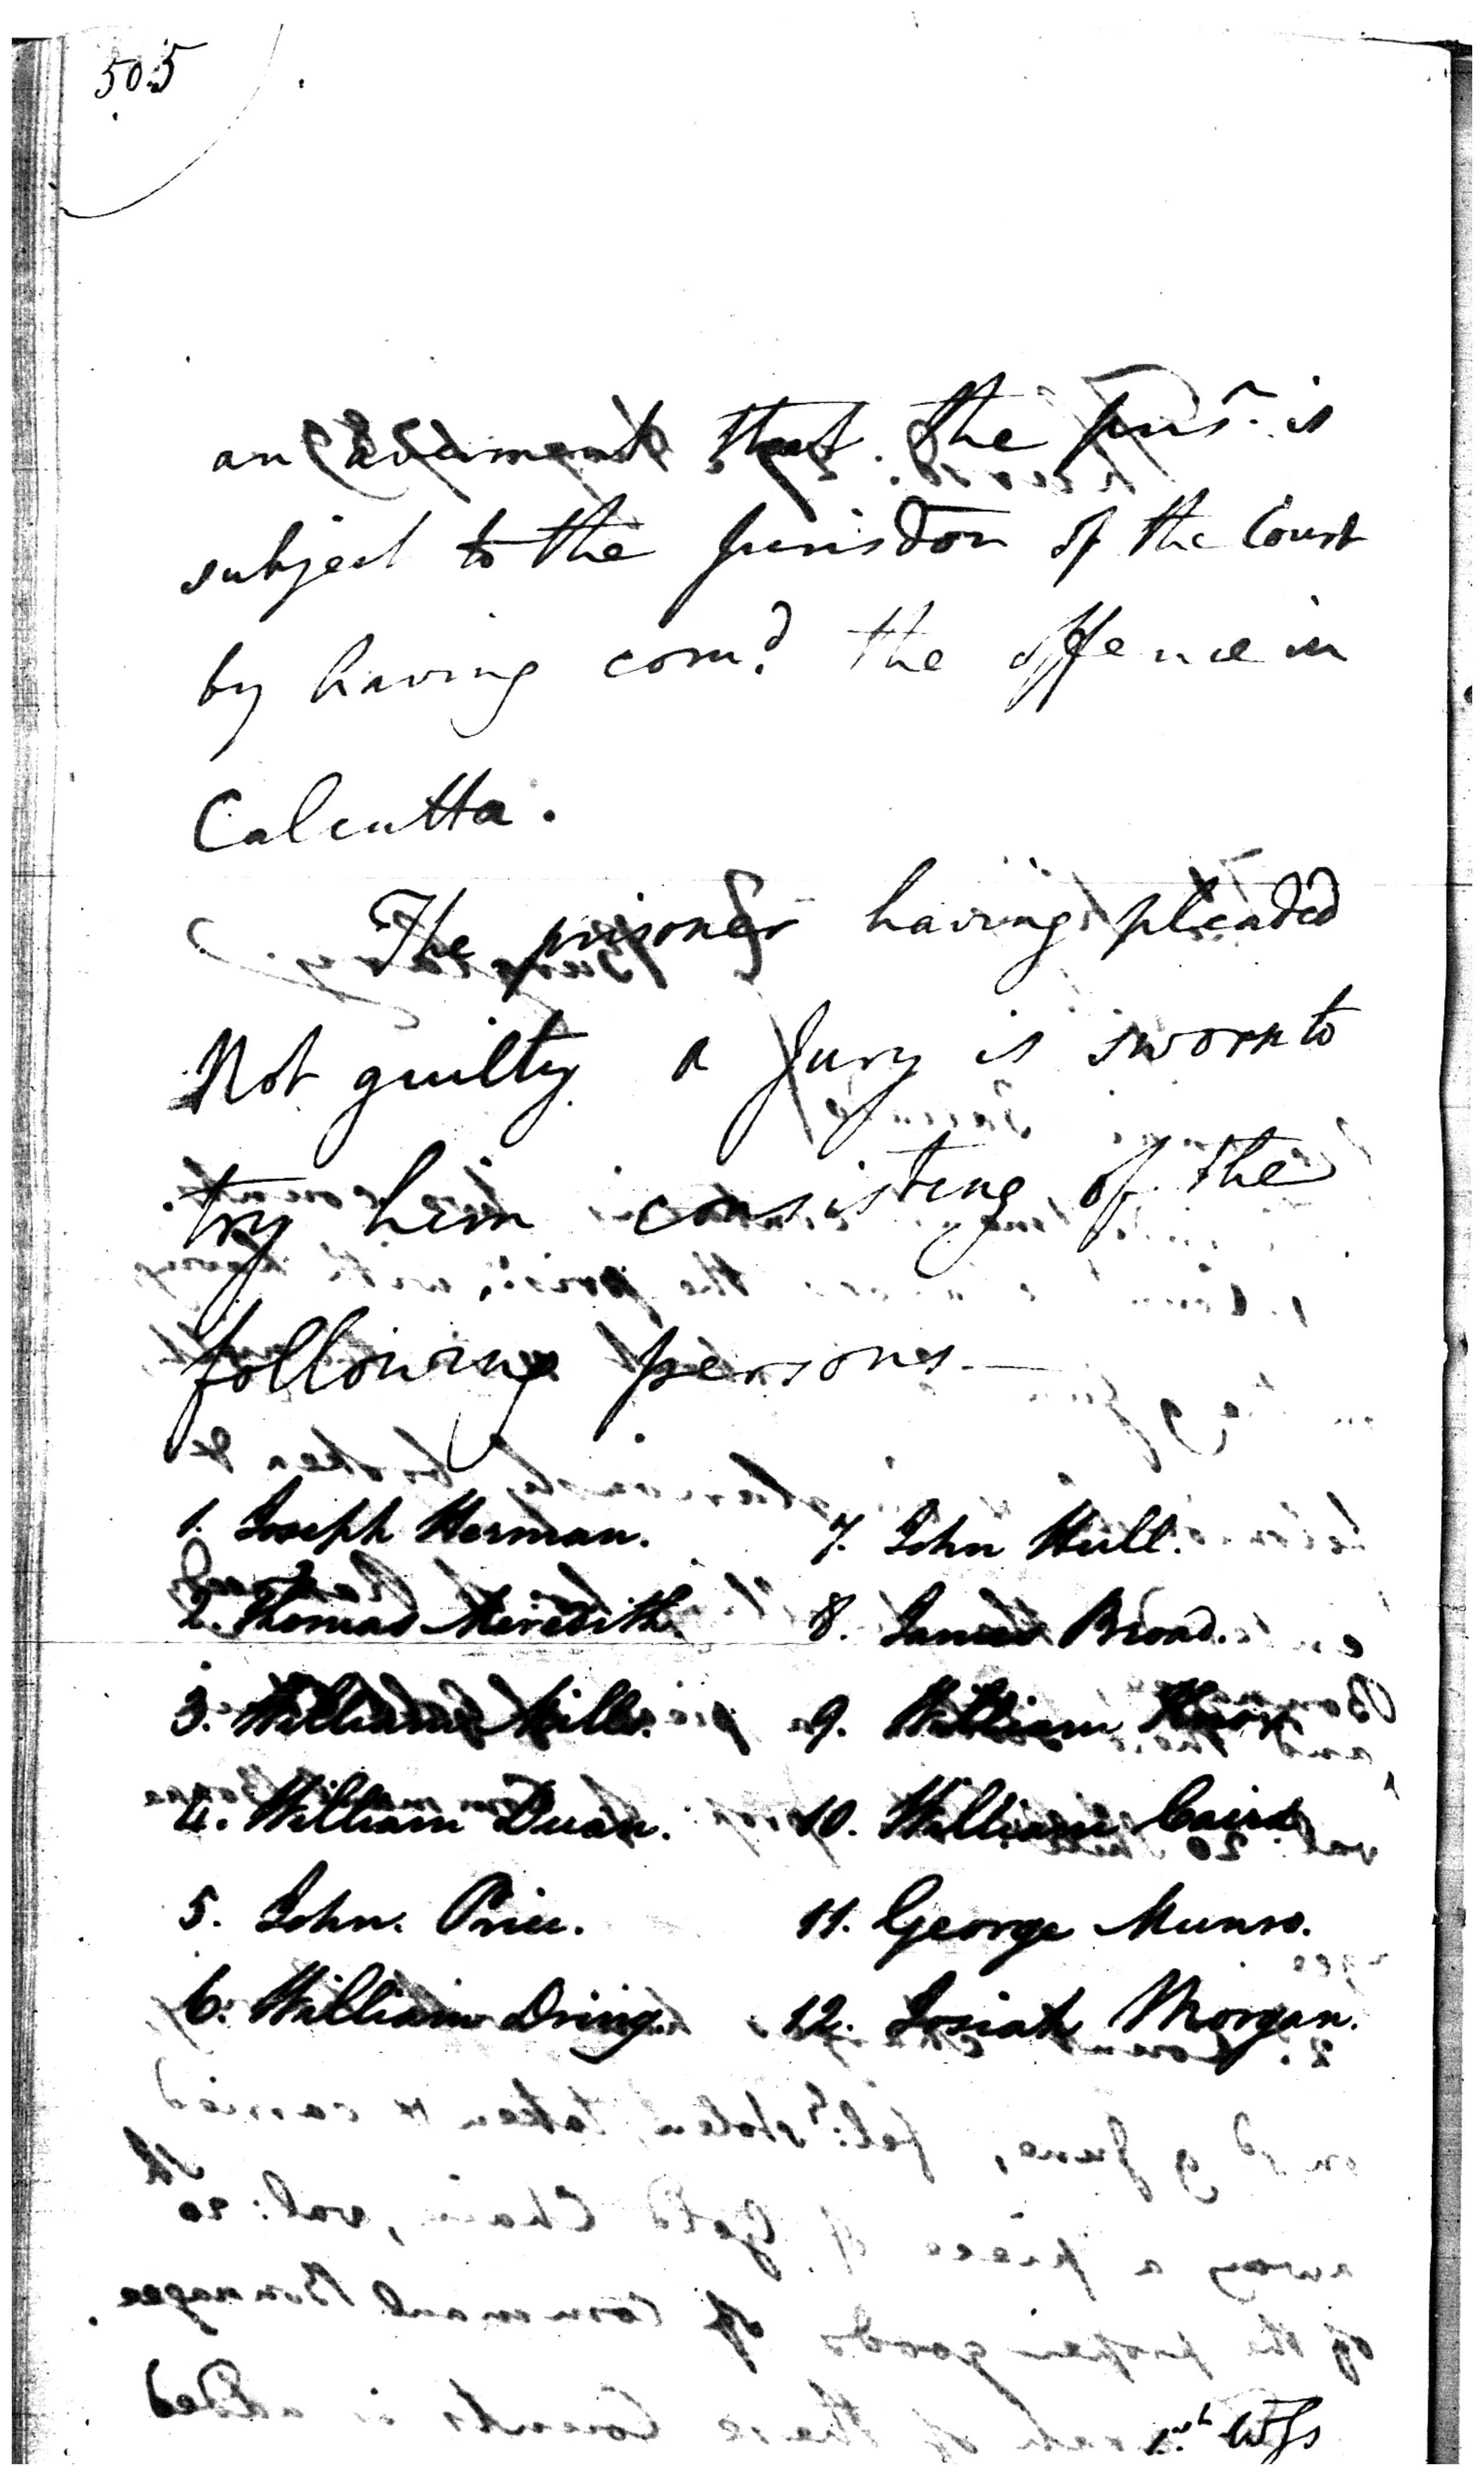 505
an averment that the pris.r is
subject to the Jurisdon of the Court
by having com.d the offence in
Calcutta.
The prisoner having pleaded
Not guilty a Jury is sworn to
try him consisting of the
following persons—
1. Joseph Herman. 7. John Hull.
2. Thomas Meredith. 8. James Broad.
3. William Mills. 9. William
4. William Duan. 10. William Caird
5. John Price. 11. George Munro.
6. William Dring. 12. Josiah Morgan.
1st Wss